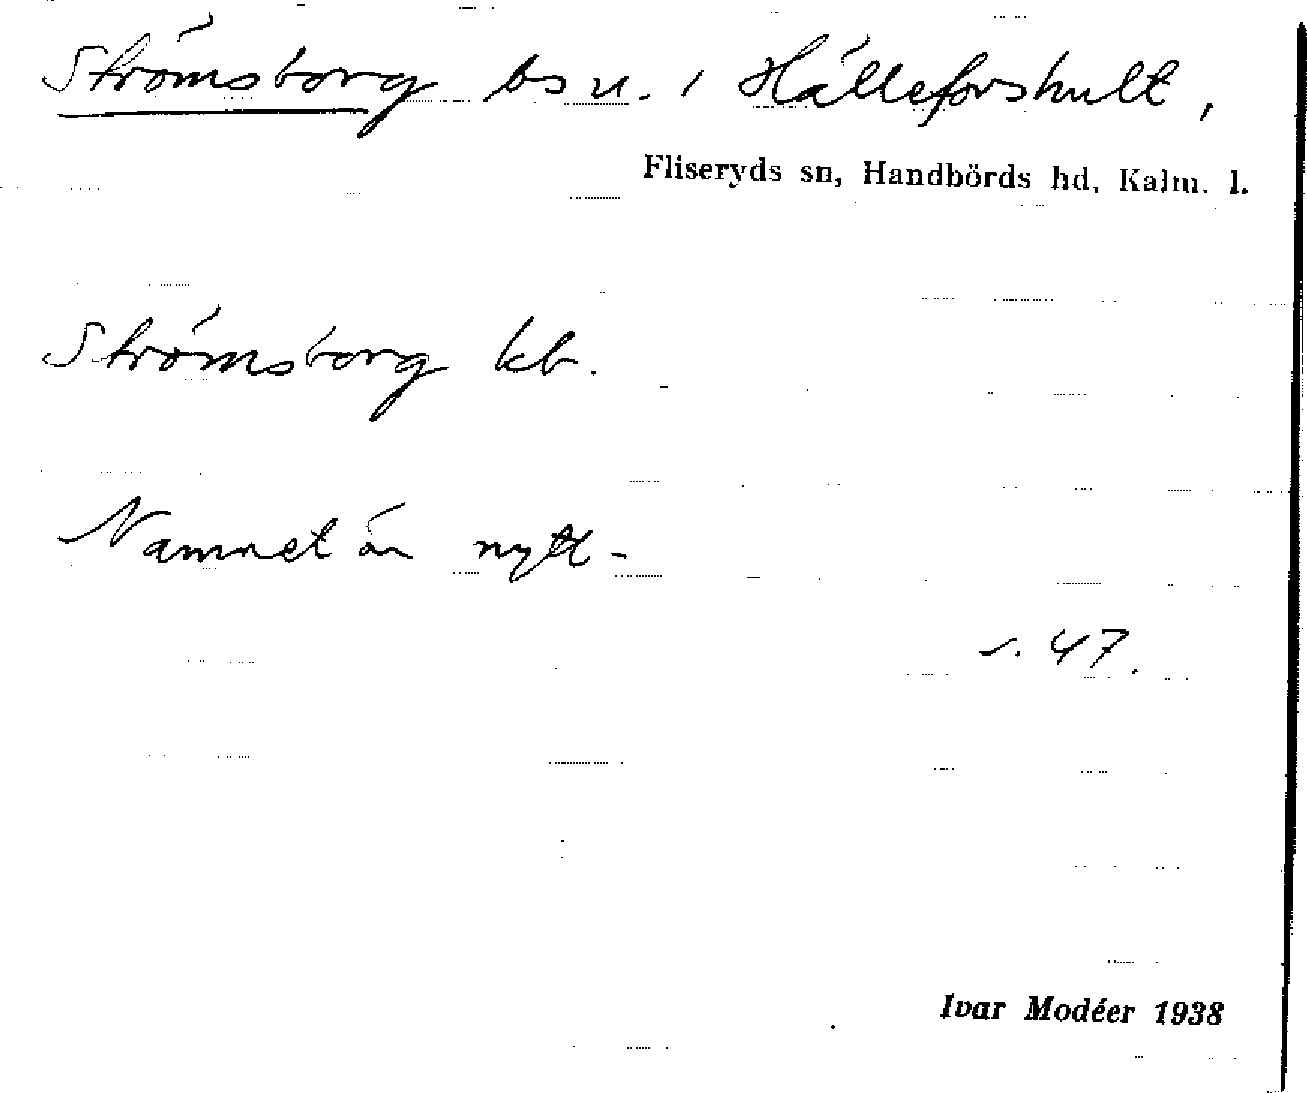 Strömsborg bs u. i Hälleforshult,
Fliseryds sn, Handbörds hd, Kalm. l.
Strömsborg kb.
Namnet är nytt.
s. 47.
Ivar Modéer 1938